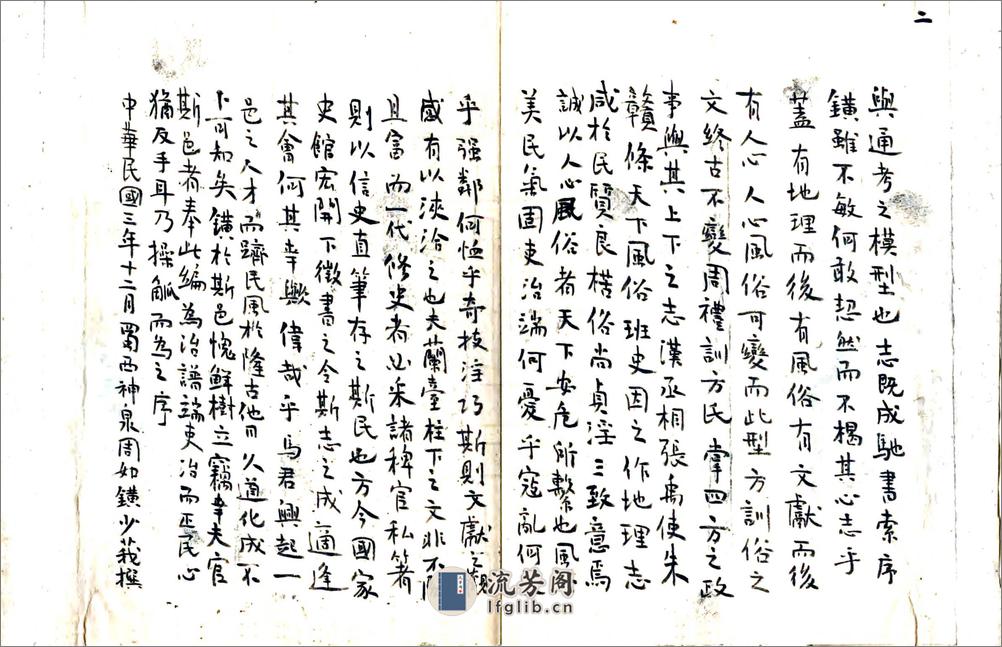 二
與通考之模型也志既成馳書索序
鐄雖不敏何敢恝然而不楬其心志乎
蓋有地理而後有風俗有文獻而後
有人心人心風俗可變而此型方訓俗之
文終古不變周禮訓方氏掌四方之政
事與其上下之志漢丞相張禹使朱
贛條天下風俗班史因之作地理志
咸於民質良楛俗尚貞淫三致意焉
誠以人心風俗者天下安危所繫也風
美民氣固吏治端何憂乎寇亂何
乎强鄰何恤乎奇技淫巧斯則文獻之觀
感有以浹洽之也夫蘭臺柱下之文非不
且富而一代修史者必采諸稗官私著
則以信史直筆存之斯民也方今國家
史館宏開下徵書之令斯志之成適逢
其會何其幸歟偉哉乎馬君興起一
邑之人才而躋民風於隆古他日久道化成不
卜可知矣鐄於斯邑愧鮮樹立竊幸夫官
斯邑者奉此編為治譜端吏治而正民心
猶反手耳乃操觚而為之序
中華民國三年十二月蜀西神泉周如鐄少莪撰
流芳阁
lfglib.cn